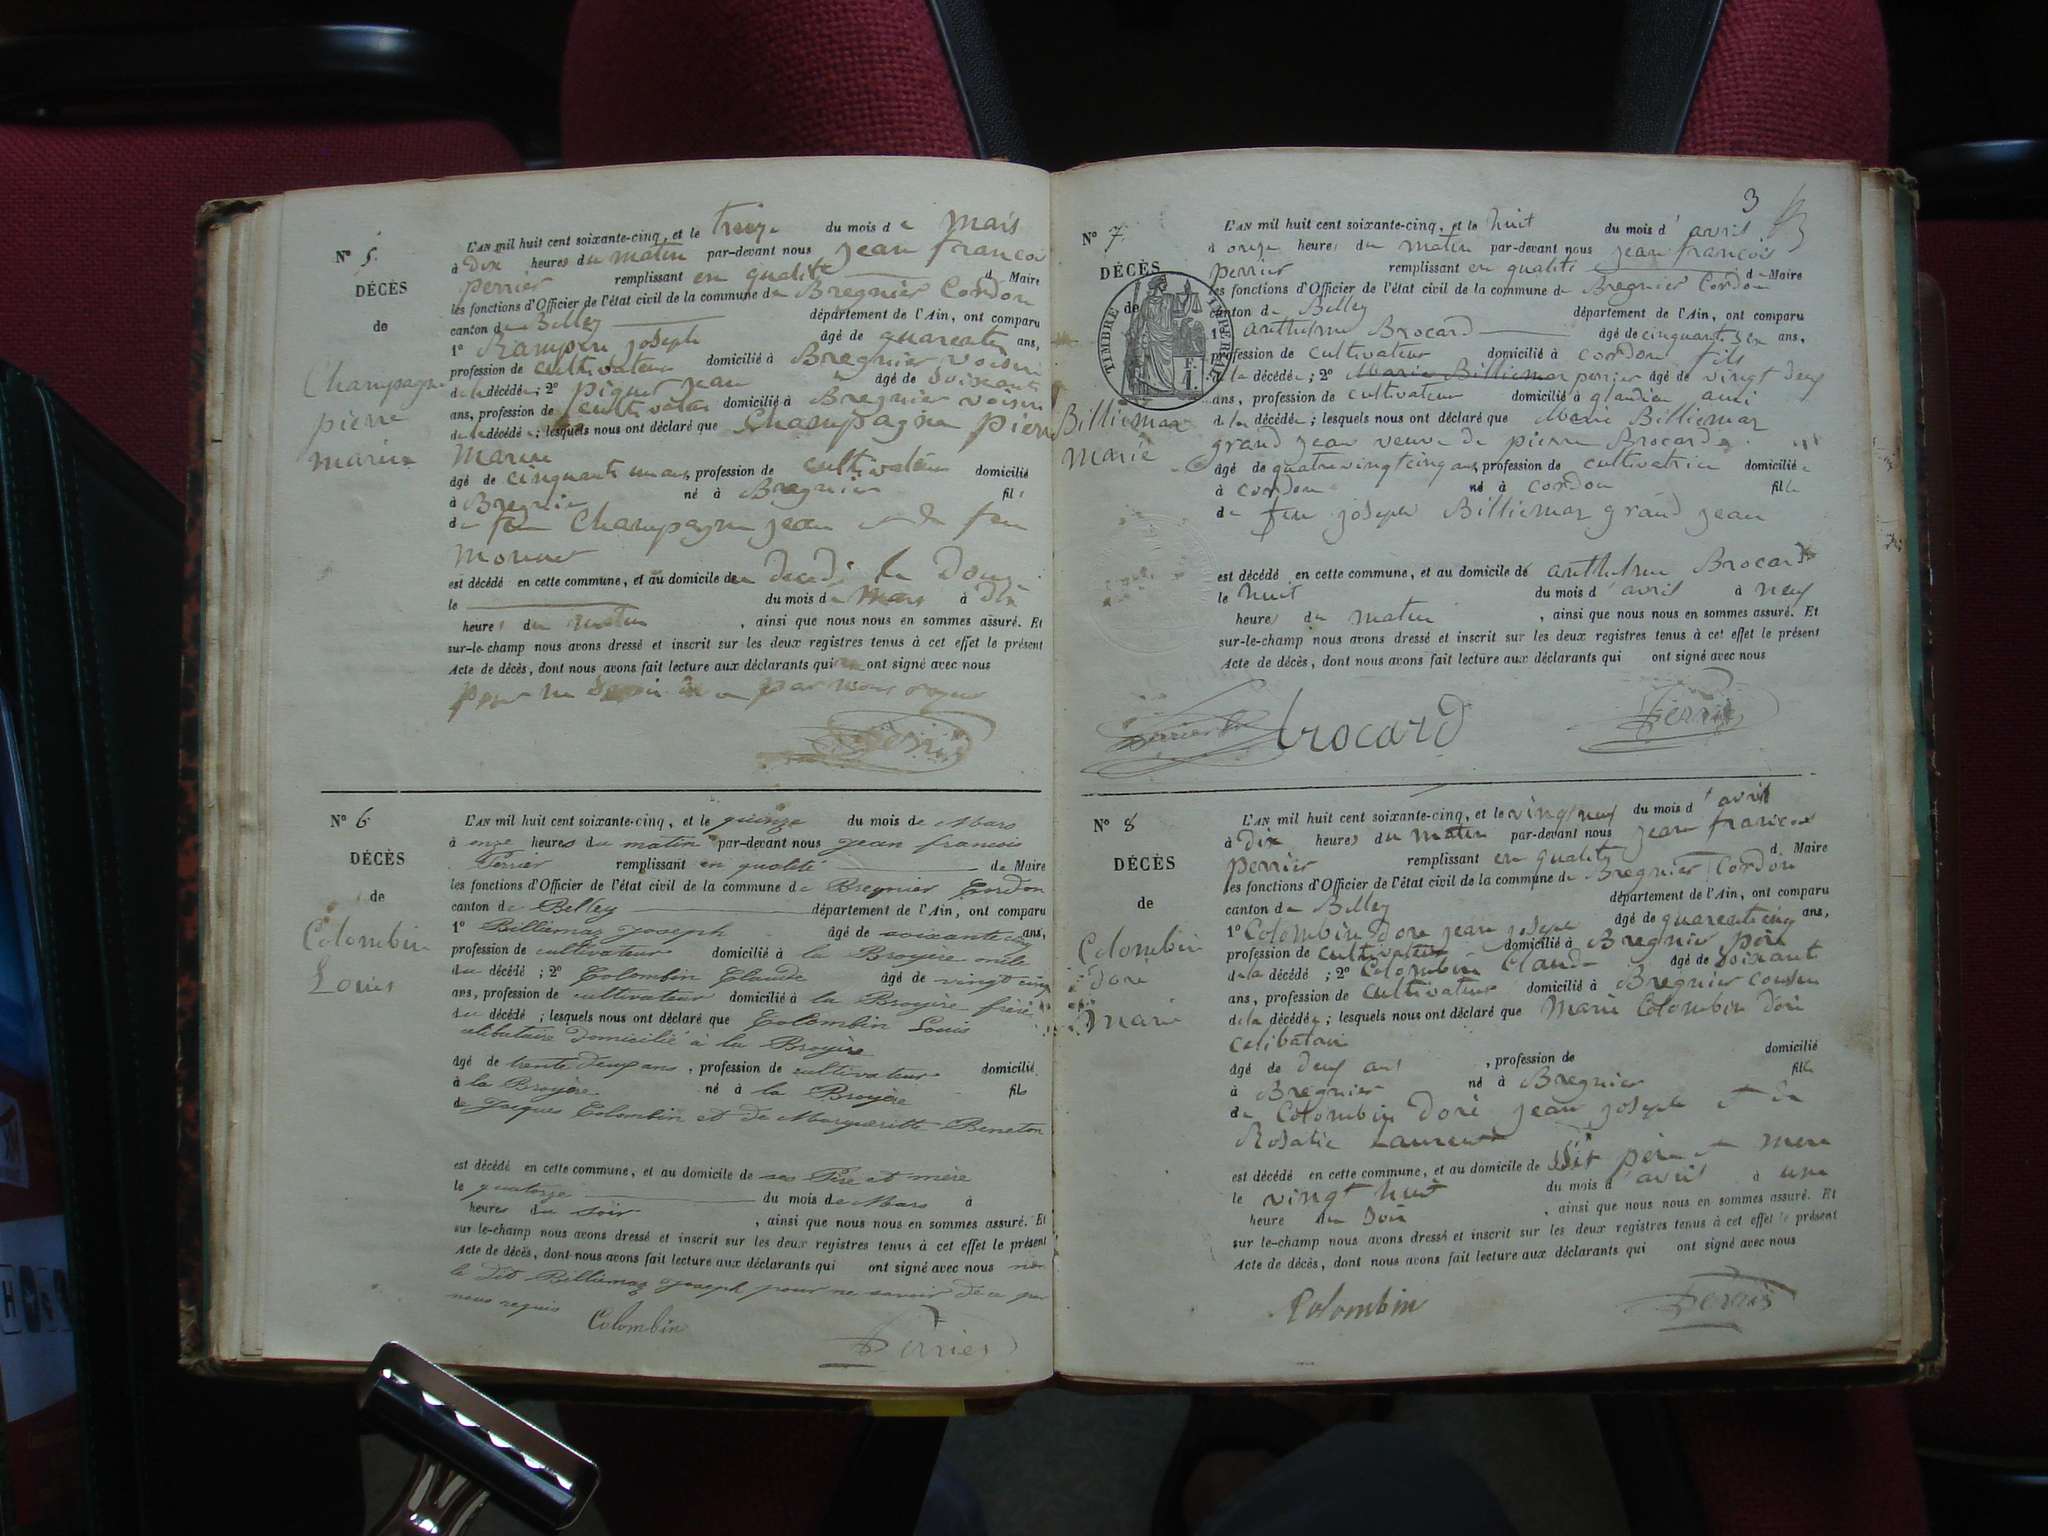 N° 5
DÉCÈS
de
Champagne
pierre
marin
L'AN mil huit cent soixante-cinq, et le treize du mois de Mars
à Dix heures du matin par-devant nous jean francois
perrier remplissant en qualité de Maire
les fonctions d'Officier de l'état civil de la commune de Bregnier Cordon
canton de Belley département de l'Ain, ont comparu
1° joseph âgé de ans,
profession de cultivateur domicilié à Bregnier voisin
de le décédé; 2° piquet jean âgé de soixante
ans, profession de cultivateur domicilié à Bregnier voisin
de le décédé; lesquels nous ont déclaré que Champagne pierre
Marin
âgé de cinquante un ans, profession de cultivateur domicilié
à Bregnier né à Bregnier fils
de feu Champagne jean et de feu
est décédé en cette commune, et au domicile de
le du mois de Mars à Dix
heures du matin, ainsi que nous nous en sommes assuré. Et
sur-le-champ nous avons dressé et inscrit sur les deux registres tenus à cet effet le présent
Acte de décès, dont nous avons fait lecture aux déclarants qui ont signé avec nous
pour ne par nous
Perrier
N° 6
DÉCÈS
de
Colombin
Louis
L'AN mil huit cent soixante-cinq, et le quinze du mois de Mars
à onze heures du matin par-devant nous jean francois
Perrier remplissant en qualité de Maire
les fonctions d'Officier de l'état civil de la commune de Bregnier Cordon
canton de Belley département de l'Ain, ont comparu
1° Billiemaz joseph âgé de soixante ans,
profession de cultivateur domicilié à la Broyère oncle
du décédé; 2° Colombin Claude âgé de vingt cinq
ans, profession de cultivateur domicilié à la Broyère frère
du décédé; lesquels nous ont déclaré que Colombin Louis
célibataire domicilié à la Broyère
âgé de trente deux ans, profession de cultivateur domicilié
à la Broyère né à la Broyère fils
de Jacques Colombin et de Margueritte Beneton
est décédé en cette commune, et au domicile de ses Père et mère
le quatorze du mois de Mars à
heures du soir, ainsi que nous nous en sommes assuré. Et
sur le-champ nous avons dressé et inscrit sur les deux registres tenus à cet effet le présent
Acte de décès, dont nous avons fait lecture aux déclarants qui ont signé avec nous non
le dit Billiemaz joseph pour ne savoir de ce par
nous requis
Colombin
Perrier
3
N° 7
DÉCÈS
de
TIMBRE IMPERIAL
1 F.
Billiemaz
Marie
L'AN mil huit cent soixante-cinq, et le huit du mois d'avril
à onze heures du matin par-devant nous jean francois
perrier remplissant en qualité de Maire
les fonctions d'Officier de l'état civil de la commune de Bregnier Cordon
canton de Belley département de l'Ain, ont comparu
1° anthelme Brocard âgé de cinquante six ans,
profession de cultivateur domicilié à cordon fils
de la décédée; 2° Marie Billiemaz perrier âgé de vingt deux
ans, profession de cultivateur domicilié à glandieu ami
de la décédée; lesquels nous ont déclaré que Marie Billiemaz
grand jean veuve de pierre Brocard
âgé de quatre vingt cinq ans, profession de cultivatrice domiciliée
à cordon né à cordon fille
de feu joseph Billiemaz grand jean
est décédé en cette commune, et au domicile de anthelme Brocard
le huit du mois d'avril à neuf
heures du matin, ainsi que nous nous en sommes assuré. Et
sur-le-champ nous avons dressé et inscrit sur les deux registres tenus à cet effet le présent
Acte de décès, dont nous avons fait lecture aux déclarants qui ont signé avec nous
Perrier
brocard
Perrier
N° 8
DÉCÈS
de
Colombin
doré
marie
L'AN mil huit cent soixante-cinq, et le vingt neuf du mois d'avril
à Dix heures du matin par-devant nous jean francois
perrier remplissant en qualité de Maire
les fonctions d'Officier de l'état civil de la commune de Bregnier Cordon
canton de Belley département de l'Ain, ont comparu
1° Colombin Doré jean joseph âgé de quarente cinq ans,
profession de cultivateur domicilié à Bregnier père
de la décédé; 2° Colombin Claude âgé de soixante
ans, profession de cultivateur domicilié à Bregnier cousin
de la décédée; lesquels nous ont déclaré que Marie Colombin Doré
celibataire
âgé de deux ans, profession de domicilié
à Bregnier né à Bregnier fille
de Colombin Doré jean joseph et de
Rosalie Laurent
est décédé en cette commune, et au domicile de ses père et mere
le vingt huit du mois d'avril à une
heure du soir, ainsi que nous nous en sommes assuré. Et
sur le-champ nous avons dressé et inscrit sur les deux registres tenus à cet effet le présent
Acte de décès, dont nous avons fait lecture aux déclarants qui ont signé avec nous
Colombin
Perrier